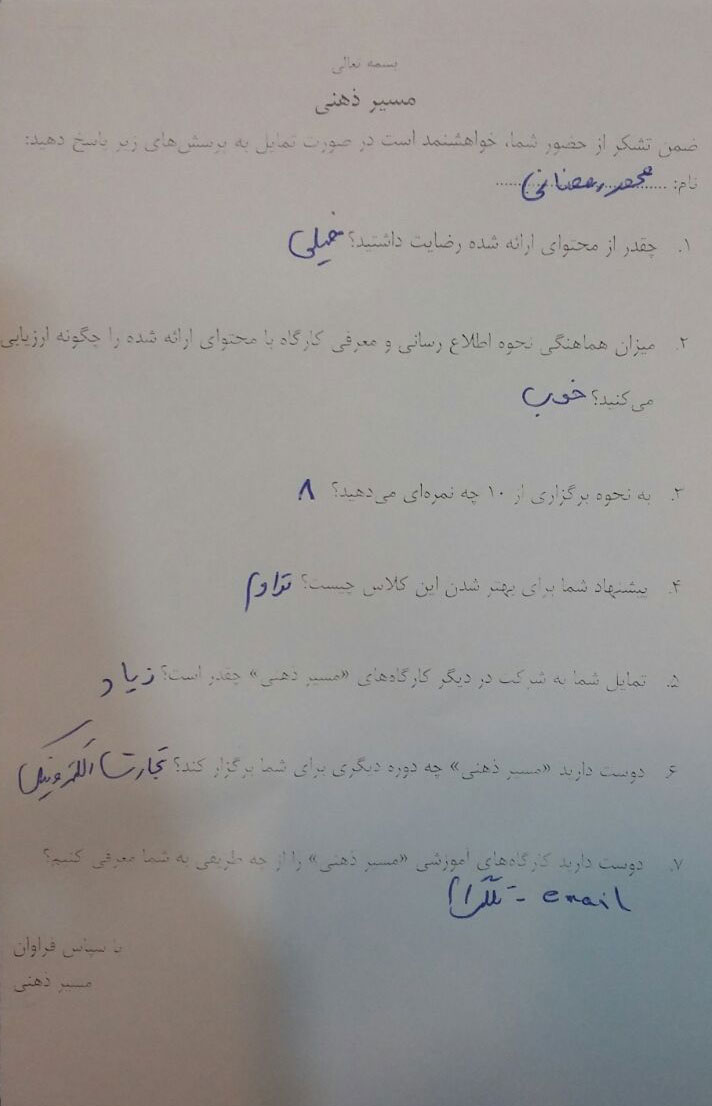 بسمه تعالی
مسیر ذهنی
ضمن تشکر از حضور شما، خواهشمند است در صورت تمایل به پرسش‌های زیر پاسخ دهید:
نام: محمد رمضانی
۱. چقدر از محتوای ارائه شده رضایت داشتید؟ خیلی
۲. میزان هماهنگی نحوه اطلاع رسانی و معرفی کارگاه با محتوای ارائه شده را چگونه ارزیابی
می‌کنید؟ خوب
۳. به نحوه برگزاری از ۱۰ چه نمره‌ای می‌دهید؟ ۸
۴. پیشنهاد شما برای بهتر شدن این کلاس چیست؟ تداوم
۵. تمایل شما به شرکت در دیگر کارگاه‌های «مسیر ذهنی» چقدر است؟ زیاد
۶. دوست دارید «مسیر ذهنی» چه دوره دیگری برای شما برگزار کند؟ تجارت الکترونیک
۷. دوست دارید کارگاه‌های آموزشی «مسیر ذهنی» را از چه طریقی به شما معرفی کنیم؟
email - تلگرام
با سپاس فراوان
مسیر ذهنی